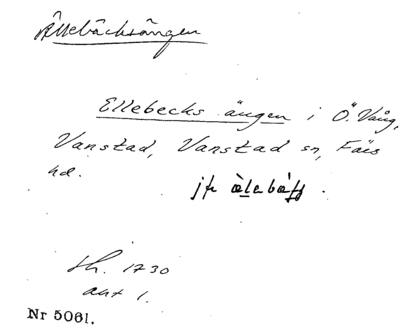 Ällebäcksängen
Ellebecks ängen i Ö. Vång,
Vanstad, Vanstad sn, Färs
hd.
jfr àlebàkk.
Lh. 1730
akt 1.
Nr 5061.